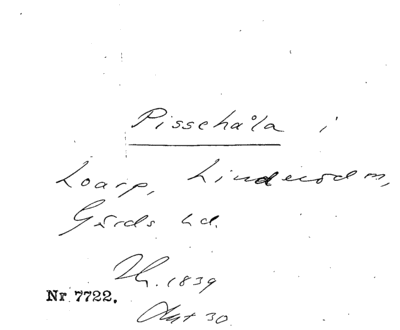 Pissehåla i
Loarp, Linderöd sn,
Gärds hd.
Th. 1839
Nr 7722.
Akt 30